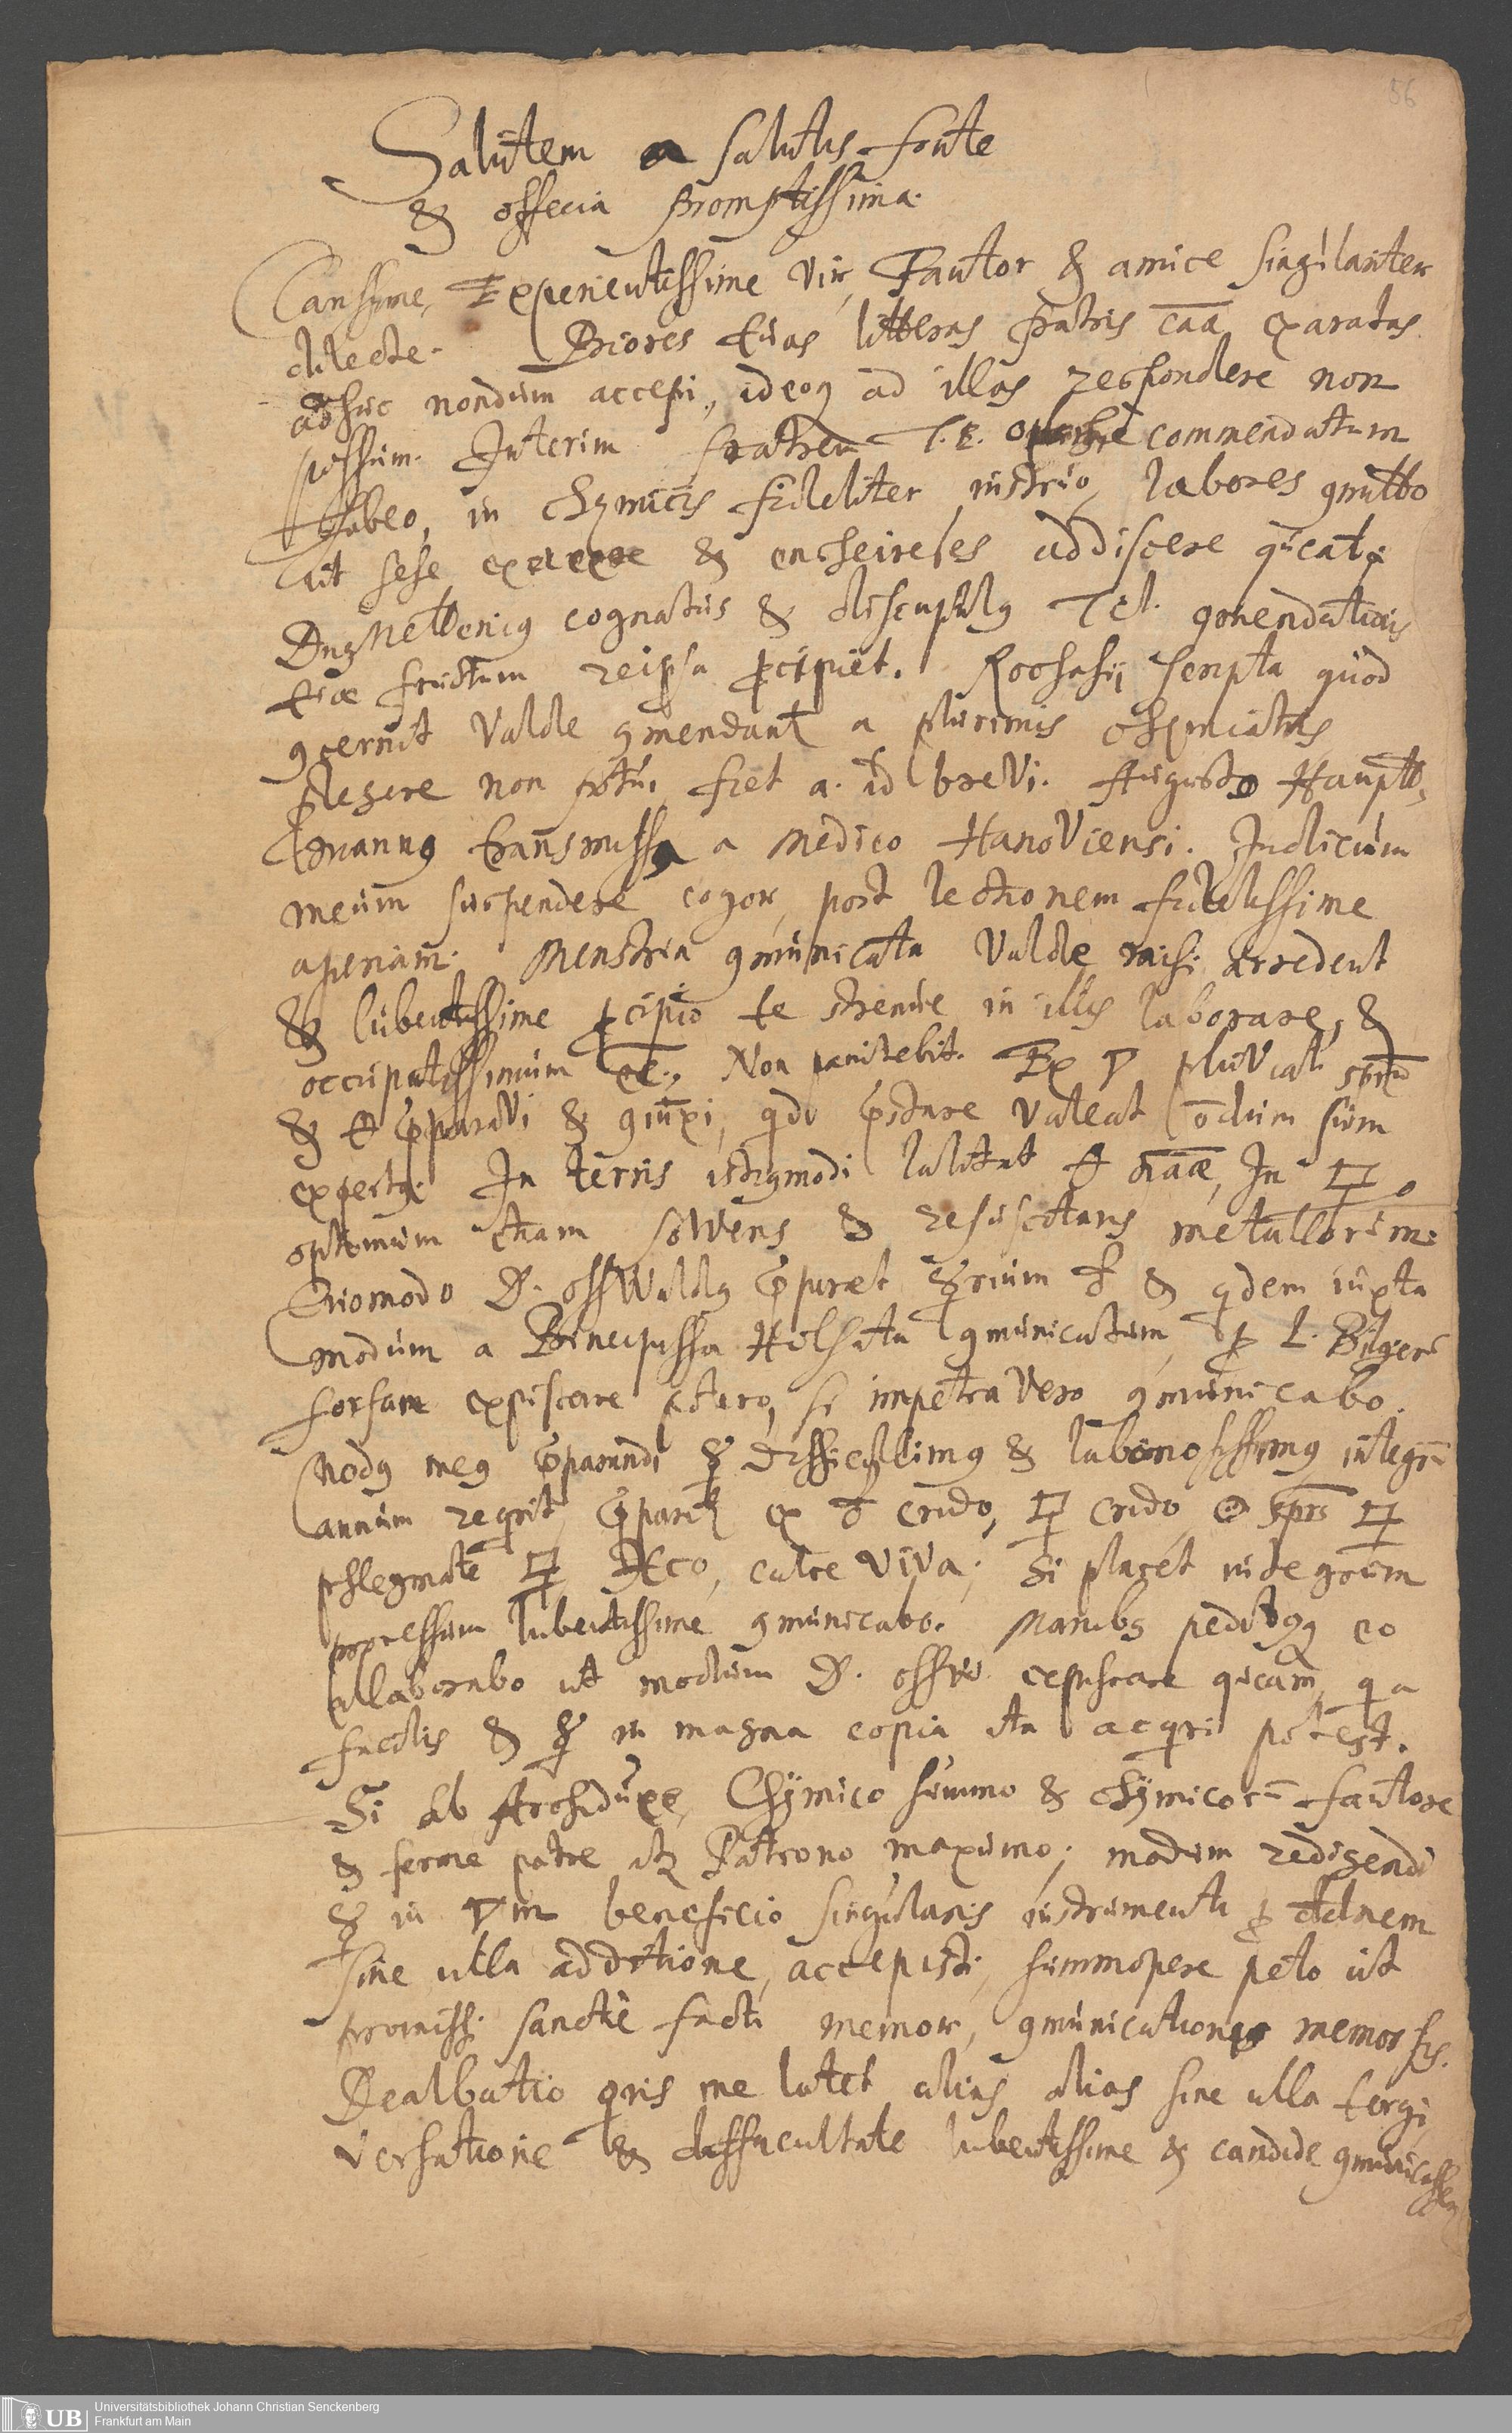 56
Salutem a salutis fonte
& officia promptissima.
Clarissime, Experientissime Vir, Fautor & amice singulariter
dilecte. Priores tuas litteras fratris caa exaratas
adhuc nondum accepi, ideoq ad illas respondere non
possum. Interim fratrem T. E. optime commendatum
habeo, in chymicis fideliter instruo, labores gmitto
ut sese exercere & encheireses addiscere queat
Dng cognatus & discipulg T. E. gmendationis
tuæ fructum reipsa pcipiet. scripta quod
gcernit Valde gmendant a plurimis chymiatris
plegere non potui fiet a. id brevi. Augusto Haupt-
manng transmissa a Medico Hanoviensi. Judicium
meum suspendere cogor, post lectionem fidelissime
aperiam. Menstrua gmunicata Valde mihi arrident
& lubentissime pcipio te strenue in illis laborare, &
occupatissimum ee., Non pænitebit. Ex ▽ pluviali sprum
& pparavi & giunxi, qd pstare valeat nondum sum
expertg. In terris istigmodi latitat In
optimum etiam solvens & resuscitans metallorum.
Quomodo D. Osswaldg pparet ☿rium & qdem iuxta
modum a Principissa Holsata gmunicatum, p L. Bilgeri
forsan expiscare potero, si impetravero gmunicabo.
Modg meg pparandi ☿ difficillimg & laboriosissimg integrum
annum reqrit, pparat ex crudo, crudo, sprs
phlegmate calce viva; Si placet integrum
processum lubentissime gmunicabo. Manibg pedibgq eo
allaborabo ut modum D. Ossw. expiscare queam, q a
facilis & ☿ in magna copia ita acqri potest.
Si ab Archiduxe, Chymico summo & chymicorum fautore
& ferme patre atq Patrono maximo; modum redigendi
☿ in ▽m beneficio singularis instrumenti p
sine ulla additione, accepisti, summopere peto ut
promissi sancte facti memor, gmunicationis memor sis.
Dealbatio me latet alias alias sine ulla tergi
versatione & difficultate lubentissime & candide gmunicassem
Universitätsbibliothek Johann Christian Senckenberg
Frankfurt am Main
UB